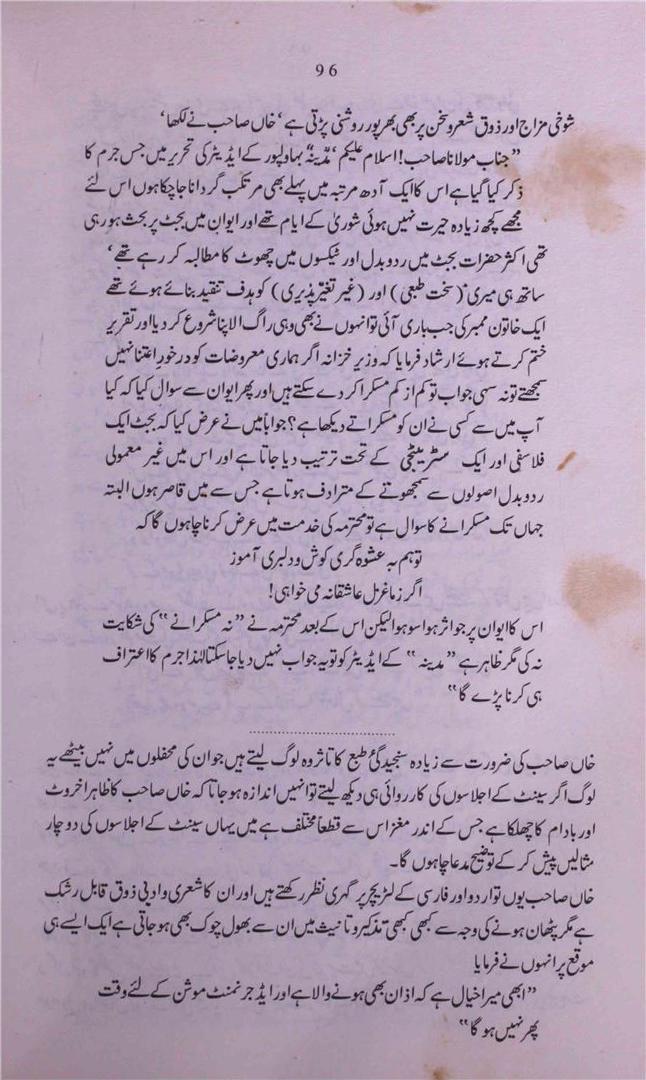 96
شوخی مزاج اور ذوق شعر و سخن پر بھی بھرپور روشنی پڑتی ہے‘ خاں صاحب نے لکھا‘
”جناب مولانا صاحب! اسلام علیکم‘ ”مدینہ“ بہاولپور کے ایڈیٹر کی تحریر میں جس جرم کا
ذکر کیا گیا ہے اس کا ایک آدھ مرتبہ میں پہلے بھی مرتکب گردانا جا چکا ہوں اس لئے
مجھے کچھ زیادہ حیرت نہیں ہوئی شوریٰ کے ایام تھے اور ایوان میں بجٹ پر بحث ہو رہی
تھی اکثر حضرات بجٹ میں ردوبدل اور ٹیکسوں میں چھوٹ کا مطالبہ کر رہے تھے‘
ساتھ ہی میری (سخت طبعی) اور (غیر تغیر پذیری) کو ہدف تنقید بنائے ہوئے تھے
ایک خاتون ممبر کی جب باری آئی تو انہوں نے بھی وہی راگ الاپنا شروع کر دیا اور تقریر
ختم کرتے ہوئے ارشاد فرمایا کہ وزیر خزانہ اگر ہماری معروضات کو درخور اعتنا نہیں
سمجھتے تو نہ سہی جواب تو کم از کم مسکرا کر دے سکتے ہیں اور پھر ایوان سے سوال کیا کہ کیا
آپ میں سے کسی نے ان کو مسکراتے دیکھا ہے؟ جواباً میں نے عرض کیا کہ بجٹ ایک
فلاسفی اور ایک سٹریٹیجی کے تحت ترتیب دیا جاتا ہے اور اس میں غیر معمولی
ردوبدل اصولوں سے سمجھوتے کے مترادف ہوتا ہے جس سے میں قاصر ہوں البتہ
جہاں تک مسکرانے کا سوال ہے تو محترمہ کی خدمت میں عرض کرنا چاہوں گا کہ
تو ہم بہ عشوہ گری کوش و دلبری آموز
اگر زما غزل عاشقانہ می خواہی!
اس کا ایوان پر جو اثر ہوا سو ہوا لیکن اس کے بعد محترمہ نے ”نہ مسکرانے“ کی شکایت
نہ کی مگر ظاہر ہے ”مدینہ“ کے ایڈیٹر کو تو یہ جواب نہیں دیا جا سکتا لہٰذا جرم کا اعتراف
ہی کرنا پڑے گا“
خاں صاحب کی ضرورت سے زیادہ سنجیدگیٔ طبع کا تاثر وہ لوگ لیتے ہیں جو ان کی محفلوں میں نہیں بیٹھے یہ
لوگ اگر سینٹ کے اجلاسوں کی کارروائی ہی دیکھ لیتے تو انہیں اندازہ ہو جاتا کہ خاں صاحب کا ظاہر اخروٹ
اور بادام کا چھلکا ہے جس کے اندر مغز اس سے قطعاً مختلف ہے میں یہاں سینٹ کے اجلاسوں کی دو چار
مثالیں پیش کر کے توضیح مدعا چاہوں گا۔
خاں صاحب یوں تو اردو اور فارسی کے لٹریچر پر گہری نظر رکھتے ہیں اور ان کا شعری و ادبی ذوق قابل رشک
ہے مگر پٹھان ہونے کی وجہ سے کبھی کبھی تذکیر و تانیث میں ان سے بھول چوک بھی ہو جاتی ہے ایک ایسے ہی
موقع پر انہوں نے فرمایا
”ابھی میرا خیال ہے کہ اذان بھی ہونے والا ہے اور ایڈجرنمنٹ موشن کے لئے وقت
پھر نہیں ہو گا“